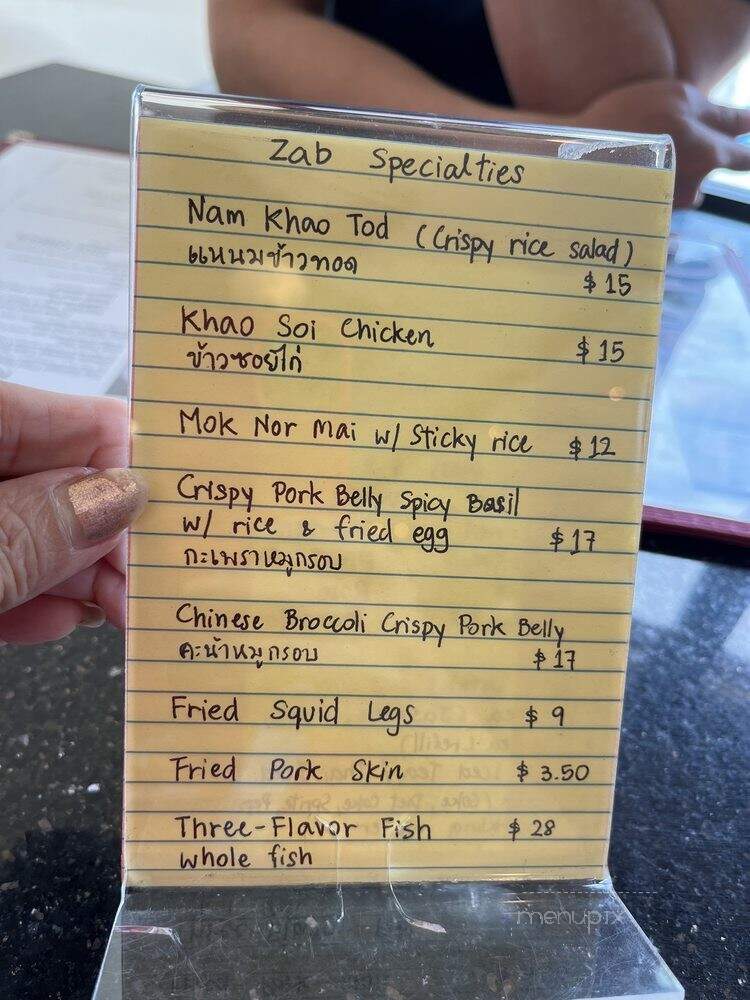 Zab Specialties
Nam Khao Tod (Crispy rice salad)
แหนมข้าวทอด $15
Khao Soi Chicken
ข้าวซอยไก่ $15
Mok Nor Mai w/ Sticky rice $12
Crispy Pork Belly Spicy Basil
w/ rice & fried egg $17
กะเพราหมูกรอบ
Chinese Broccoli Crispy Pork Belly
คะน้าหมูกรอบ $17
Fried Squid Legs $9
Fried Pork Skin $3.50
Three-Flavor Fish $28
whole fish
menupix